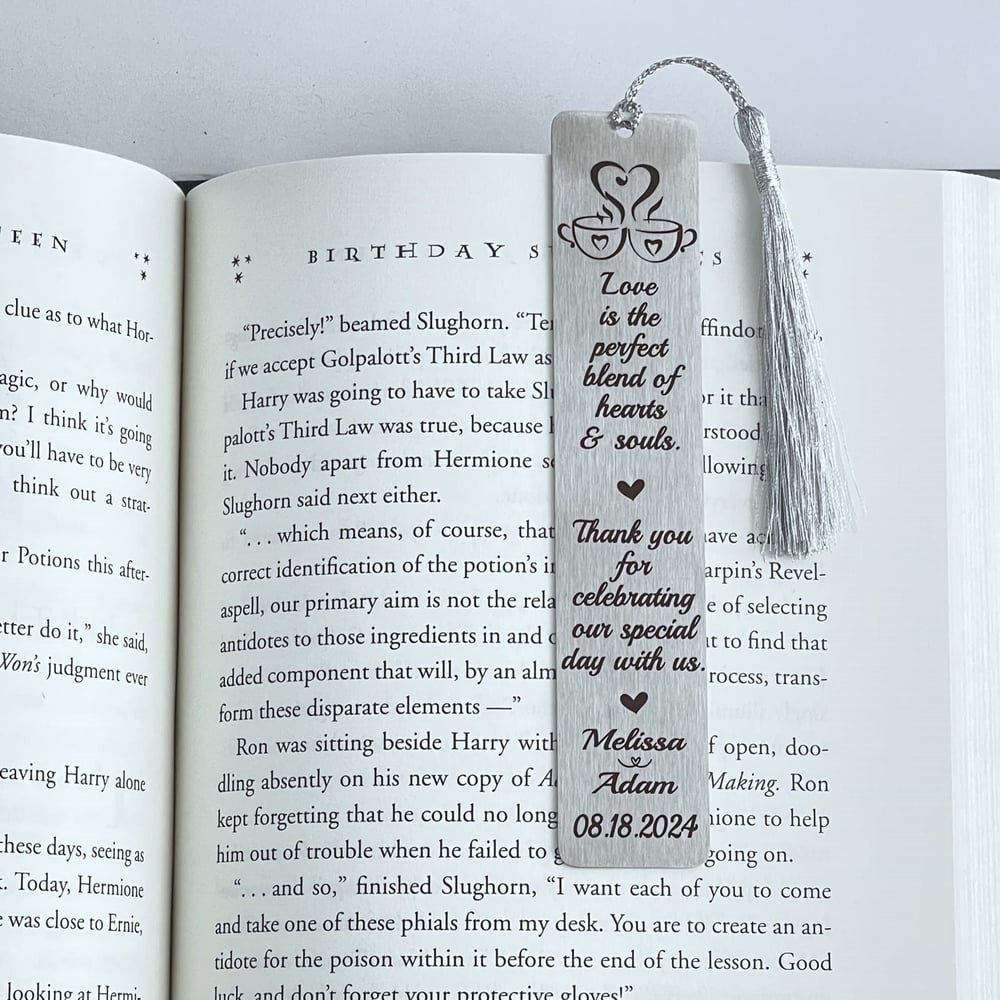 EEN
clue as to what Hor-
would
agic, or why
m? I think it's going
you'll have to be very
think out a strat-
r Potions this after-
etter do it," she said,
Won's judgment ever
eaving Harry alone
these days, seeing as
Today, Hermione
was close to Ernie,
looking at Hermi-
BIRTHDAY S S
"Precisely!" beamed Slughorn. "Te ffindor,
if we accept Golpalott's Third Law as
Harry was going to have to take Sl or it tha
palott's Third Law was true, because rstood
it. Nobody apart from Hermione s llowing
Slughorn said next either.
". . . which means, of course, that have ac
correct identification of the potion's in arpin's Revel-
aspell, our primary aim is not the rela e of selecting
antidotes to those ingredients in and o t to find that
added component that will, by an alm rocess, trans-
form these disparate elements —"
Ron was sitting beside Harry with f open, doo-
dling absently on his new copy of A Making. Ron
kept forgetting that he could no long ione to help
him out of trouble when he failed to g going on.
". . . and so," finished Slughorn, "I want each of you to come
and take one of these phials from my desk. You are to create an an-
tidote for the poison within it before the end of the lesson. Good
luck, and don't forget your protective gloves!"
Love
is the
perfect
blend of
hearts
& souls.
Thank you
for
celebrating
our special
day with us.
Melissa
Adam
08.18.2024